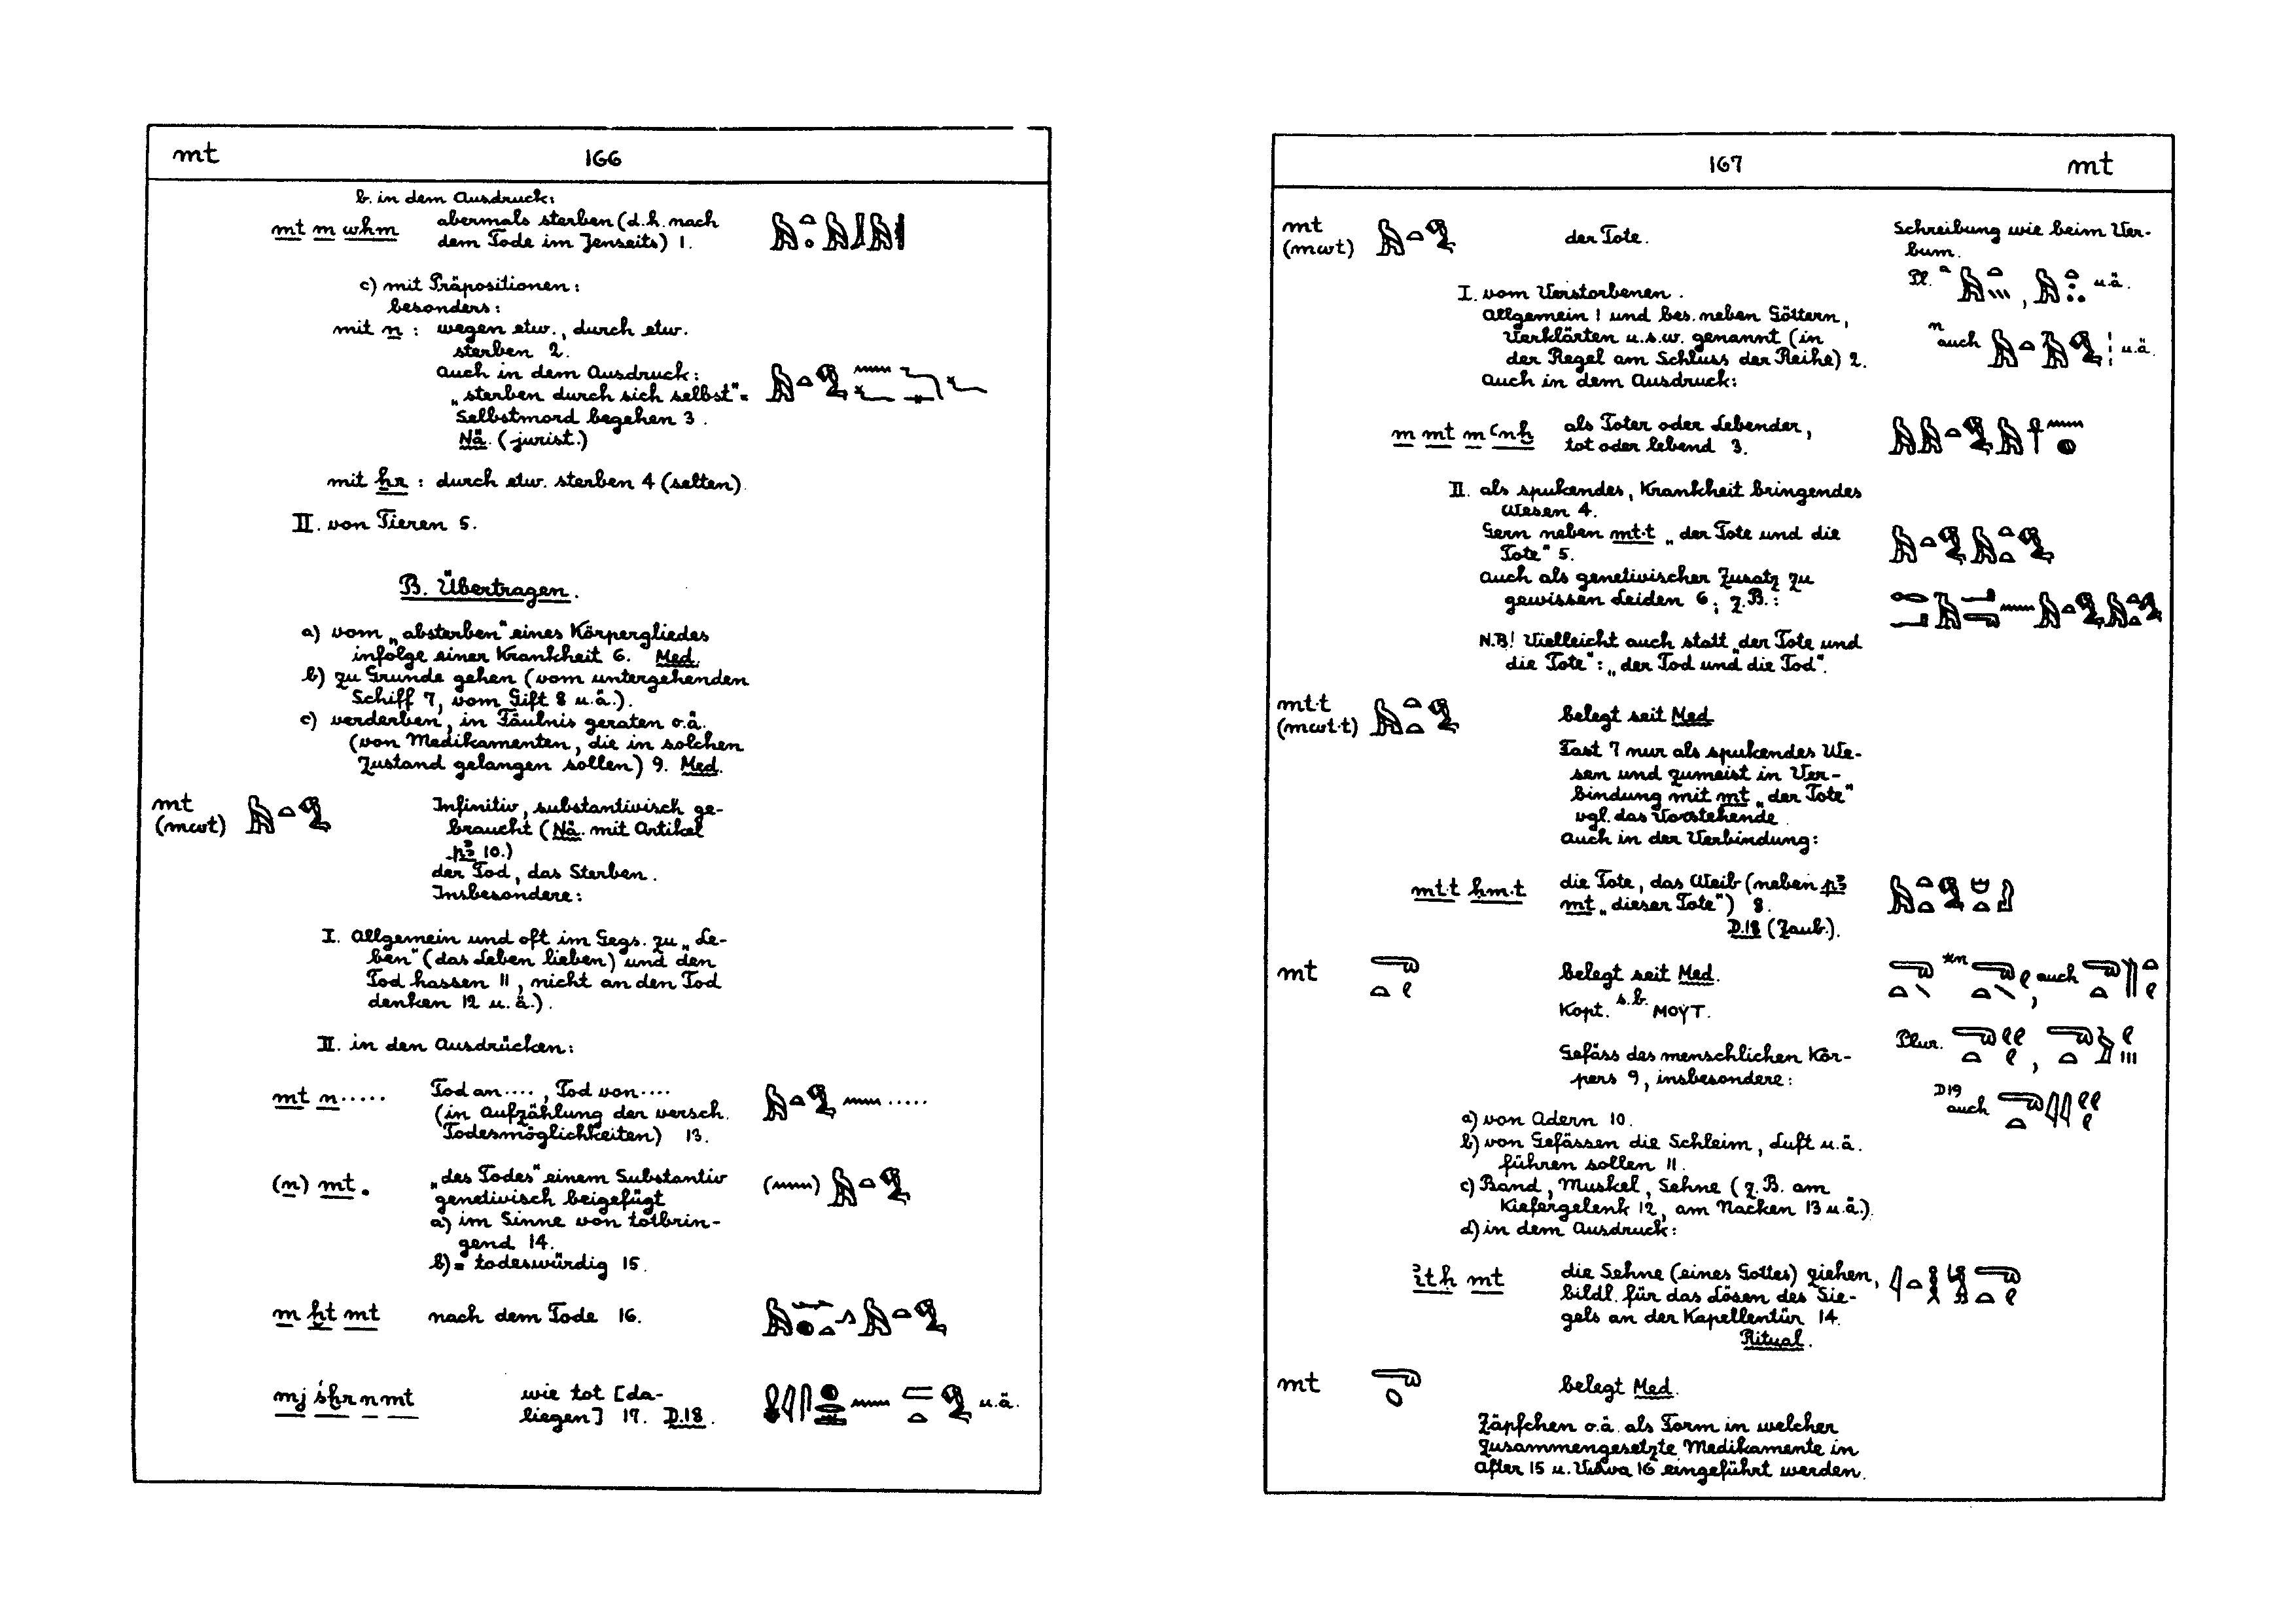 mt 166
b. in dem Ausdruck:
mt m wḥm abermals sterben (d.h. nach
dem Tode im Jenseits) 1.
c) mit Präpositionen:
besonders:
mit n : wegen etw., durch etw.
sterben 2.
auch in dem Ausdruck:
„sterben durch sich selbst" =
Selbstmord begehen 3.
Nä. (jurist.)
mit ḥr : durch etw. sterben 4 (selten).
II. von Tieren 5.
B. Übertragen.
a) vom „absterben" eines Körpergliedes
infolge einer Krankheit 6. Med.
b) zu Grunde gehen (vom untergehenden
Schiff 7, vom Gift 8 u.ä.).
c) verderben, in Fäulnis geraten o.ä.
(von Medikamenten, die in solchen
Zustand gelangen sollen) 9. Med.
mt Infinitiv, substantivisch ge-
(mwt) braucht (Nä. mit Artikel
pꜣ 10.)
der Tod, das Sterben.
Insbesondere:
I. Allgemein und oft im Gegs. zu „Le-
ben" (das Leben lieben) und den
Tod hassen 11, nicht an den Tod
denken 12 u.ä.).
II. in den Ausdrücken:
mt n ..... Tod an ...., Tod von ....
(in Aufzählung der versch.
Todesmöglichkeiten) 13.
(n) mt. „des Todes" einem Substantiv
genetivisch beigefügt
a) im Sinne von totbrin-
gend 14.
b) = todeswürdig 15.
m ḫt mt nach dem Tode 16.
mj śḫr n mt wie tot [da- u.ä.
liegen] 17. D.18.
167 mt
mt der Tote. Schreibung wie beim Ver-
(mwt) bum.
Pl. a , u.ä.
I. vom Verstorbenen.
Allgemein 1 und bes. neben Göttern,
Verklärten u.s.w. genannt (in n auch u.ä.
der Regel am Schluss der Reihe) 2.
Auch in dem Ausdruck:
m mt m ꜥnḫ als Toter oder Lebender,
tot oder lebend 3.
II. als spukendes, Krankheit bringendes
Wesen 4.
Gern neben mt.t „der Tote und die
Tote" 5.
auch als genetivischer Zusatz zu
gewissen Leiden 6; z.B.:
N.B! Vielleicht auch statt „der Tote und
die Tote": „der Tod und die Tod".
mt.t belegt seit Med.
(mwt.t)
Fast 7 nur als spukendes We-
sen und zumeist in Ver-
bindung mit mt „der Tote"
vgl. das Vorstehende.
Auch in der Verbindung:
mt.t ḥm.t die Tote, das Weib (neben pꜣ
mt „dieser Tote") 8.
D.18 (Zaub.).
mt belegt seit Med. *n , auch
Kopt. s.b. ⲙⲟⲩⲧ.
Plur. ,
Gefäss des menschlichen Kör-
pers 9, insbesondere:
D19 auch
a) von Adern 10.
b) von Gefässen die Schleim, Luft u.ä.
führen sollen 11.
c) Band, Muskel, Sehne (z.B. am
Kiefergelenk 12, am Nacken 13 u.ä.).
d) in dem Ausdruck:
ꞽtḥ mt die Sehne (eines Gottes) ziehen,
bildl. für das Lösen des Sie-
gels an der Kapellentür 14.
Ritual.
mt belegt Med.
Zäpfchen o.ä. als Form in welcher
zusammengesetzte Medikamente in
After 15 u. Vulva 16 eingeführt werden.